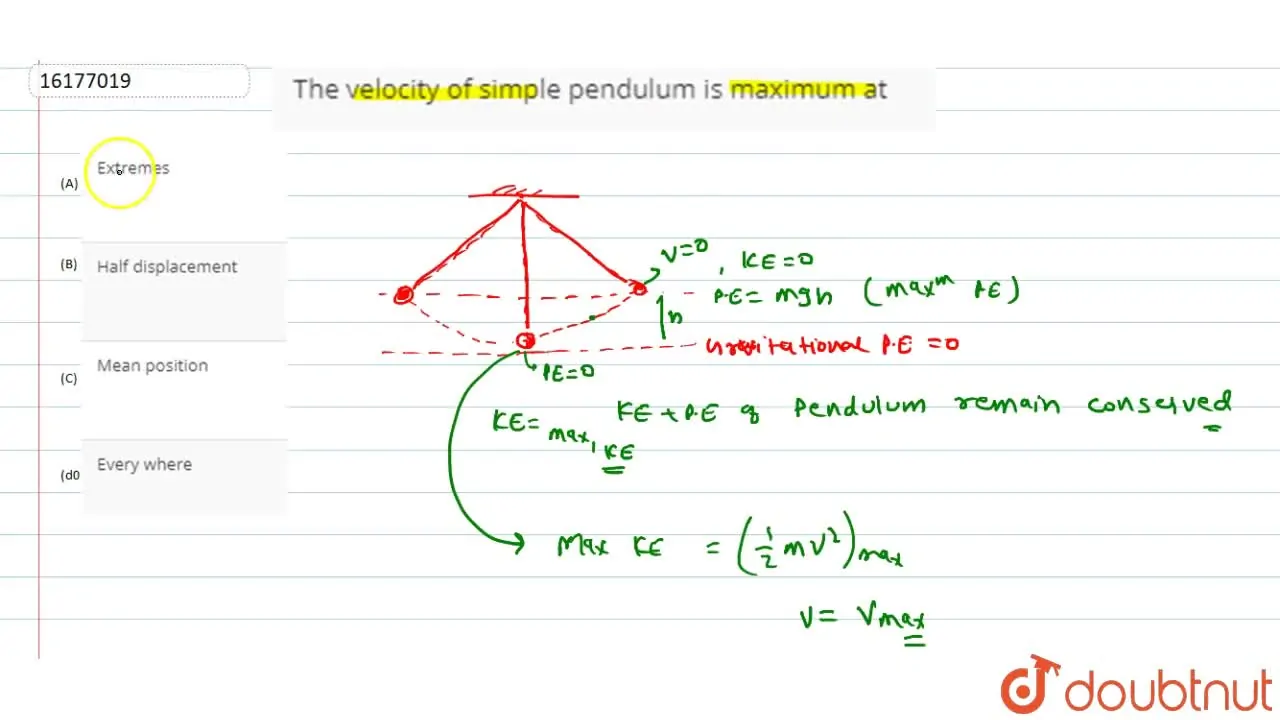 16177019
The velocity of simple pendulum is maximum at
(A) Extremes
(B) Half displacement
(C) Mean position
(d0 Every where
V=0, KE=0
P.E = mgh (max^m P.E)
h
Gravitational P.E = 0
PE=0
KE = max, KE
KE + P.E of Pendulum remain conserved
Max KE = (1/2 mv²)max
V = Vmax
doubtnut